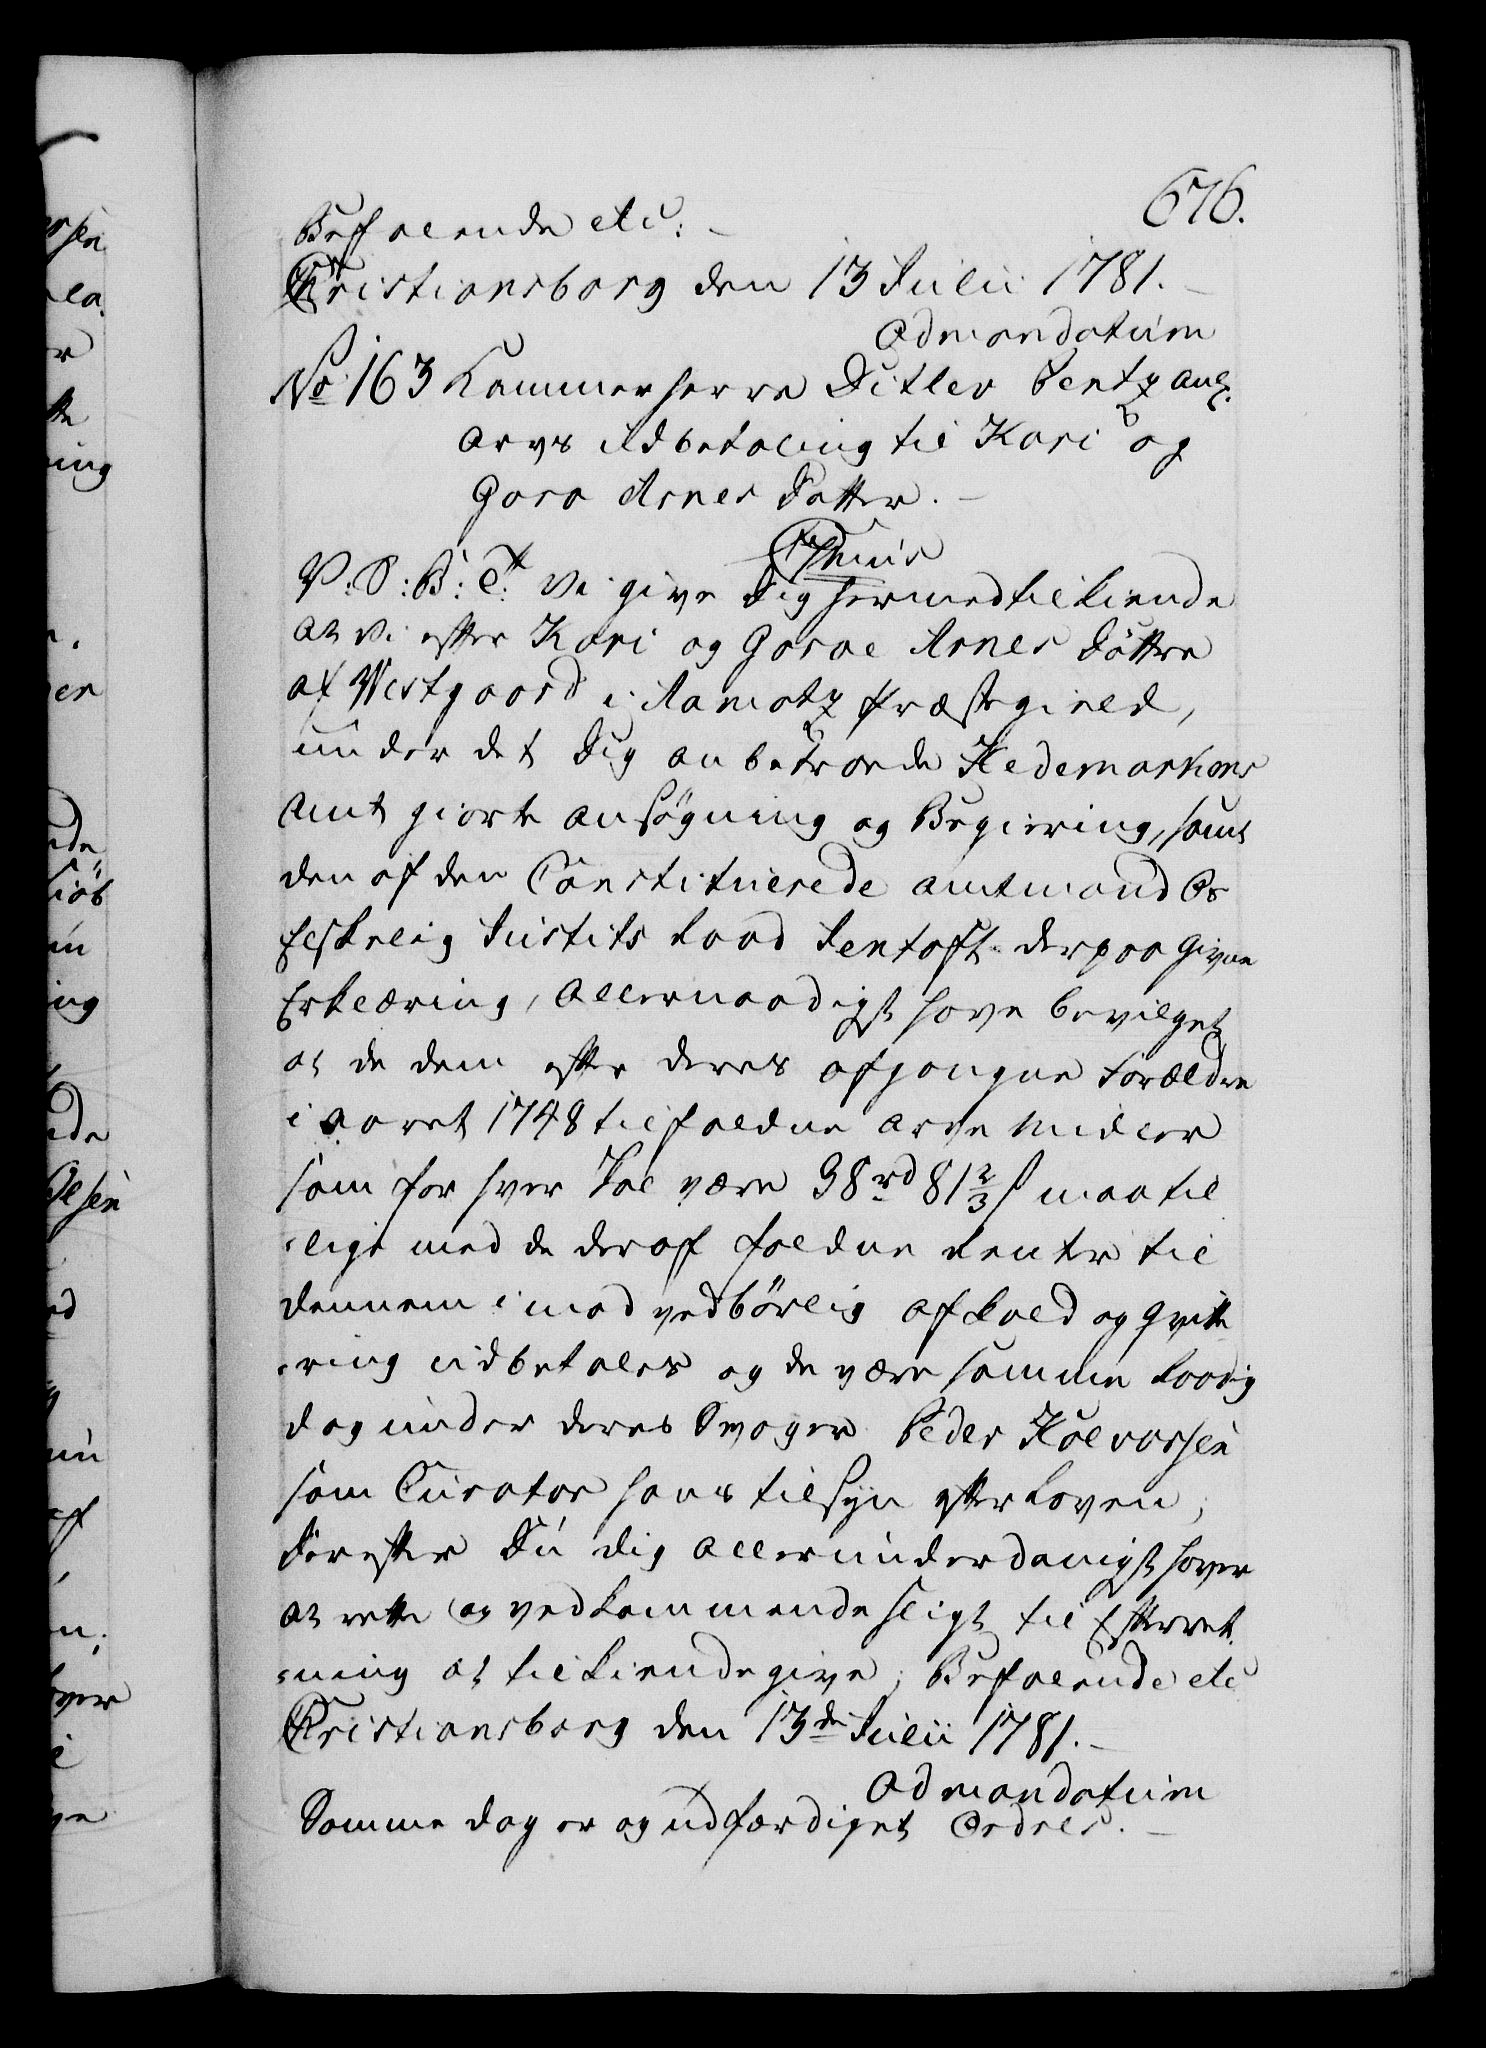 676.
Befalende etc: –
Christiansborg den 13 Julii 1781. –
Ad mandatum
No 163 Kammerherre Ditlev Pentz ang.
Arvs Udbetaling til Kari og
Goro Arnes Datter. –
Thuus
V: S: B: T: Vi give Dig hermed tilkiende
at Vi efter Kari og Goroe Arnes Döttre
af Westgaard i Aamotz Præstegield,
under det Dig anbetroede Hedemarkens
Amt giorte Ansøgning og Begiering, samt
den af den Constituerede Amtmand Os
Elskelig Justits Raad Jentoft derpaa givne
Erklæring, Allernaadigst have bevilget
at de dem efter deres afgangne Forældre
i Aaret 1748 tilfaldne Arve Midler
som for hver skal være 38 rd 81 2/3 ß maa til
-lige med de deraf faldne Renter til
dennem imod vedbörlig Afkald og Qvitte
-ring udbetales og de være samme Raadig
dog under deres Svoger Peder Halvorsen
som Curator hans tilsyn efter Loven,
Derefter Du dig allerunderdanigst haver
at rette og vedkommende sligt til Efterret-
-ning at tilkiendegive; Befalende etc
Christiansborg den 13de Julii 1781. –
Ad mandatum
Samme dag er og udfærdiget Ordres. –